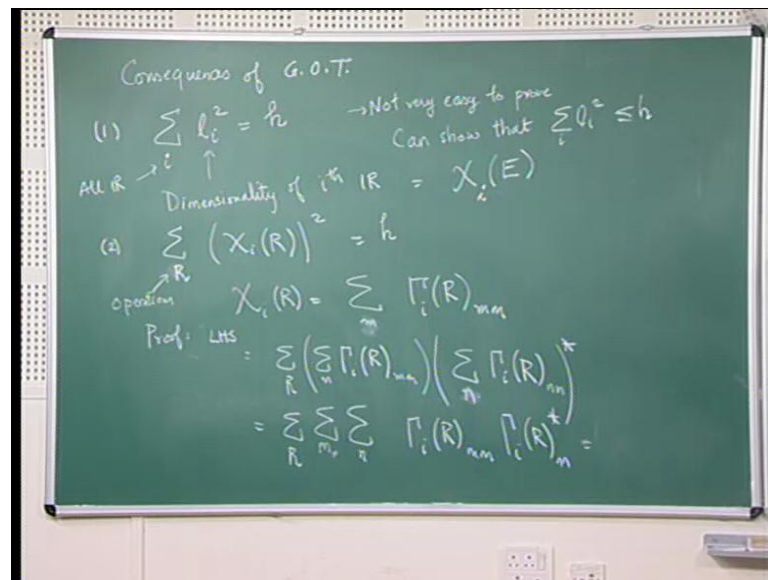 Consequences of G.O.T.
(1) ∑_i l_i² = h → Not very easy to prove
Can show that ∑_i l_i² ≤ h
All IR
Dimensionality of iᵗʰ IR = χ_i(E)
(2) ∑_R (χ_i(R))² = h
Operations χ_i(R) = ∑_m Γ_i(R)_mm
Proof: LHS
= ∑_R (∑_m Γ_i(R)_mm) (∑_n Γ_i(R)_nn)*
= ∑_R ∑_m ∑_n Γ_i(R)_mm Γ_i(R)*_n =